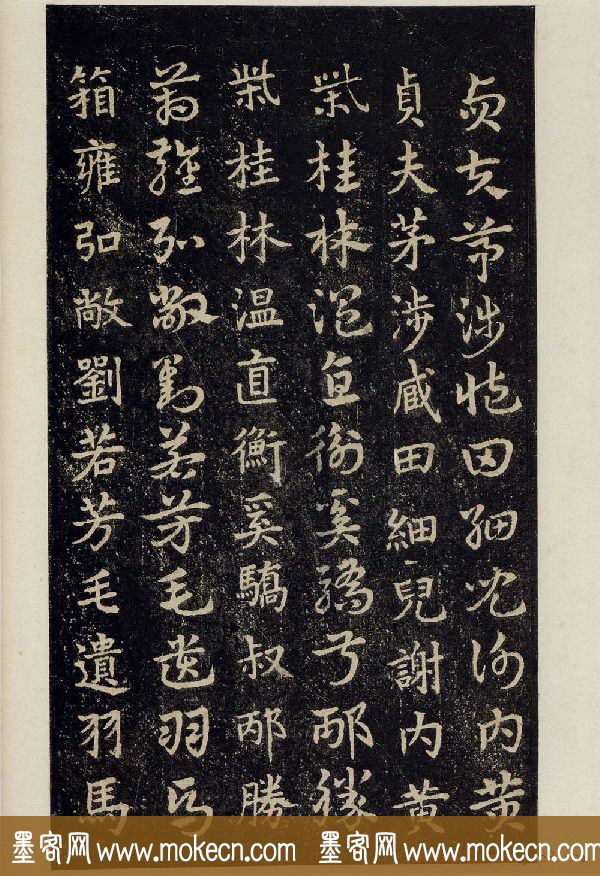 貞夫茅涉臧田細兒謝内黄
貞夫茅涉臧田細兒謝内黄
柴桂林温直衡奚驕叔邴勝
柴桂林温直衡奚驕叔邴勝
箱雍弘敞劉若芳毛遺羽馬
箱雍弘敞劉若芳毛遺羽馬
墨客网 www.mokecn.com 墨客网 www.mokecn.com